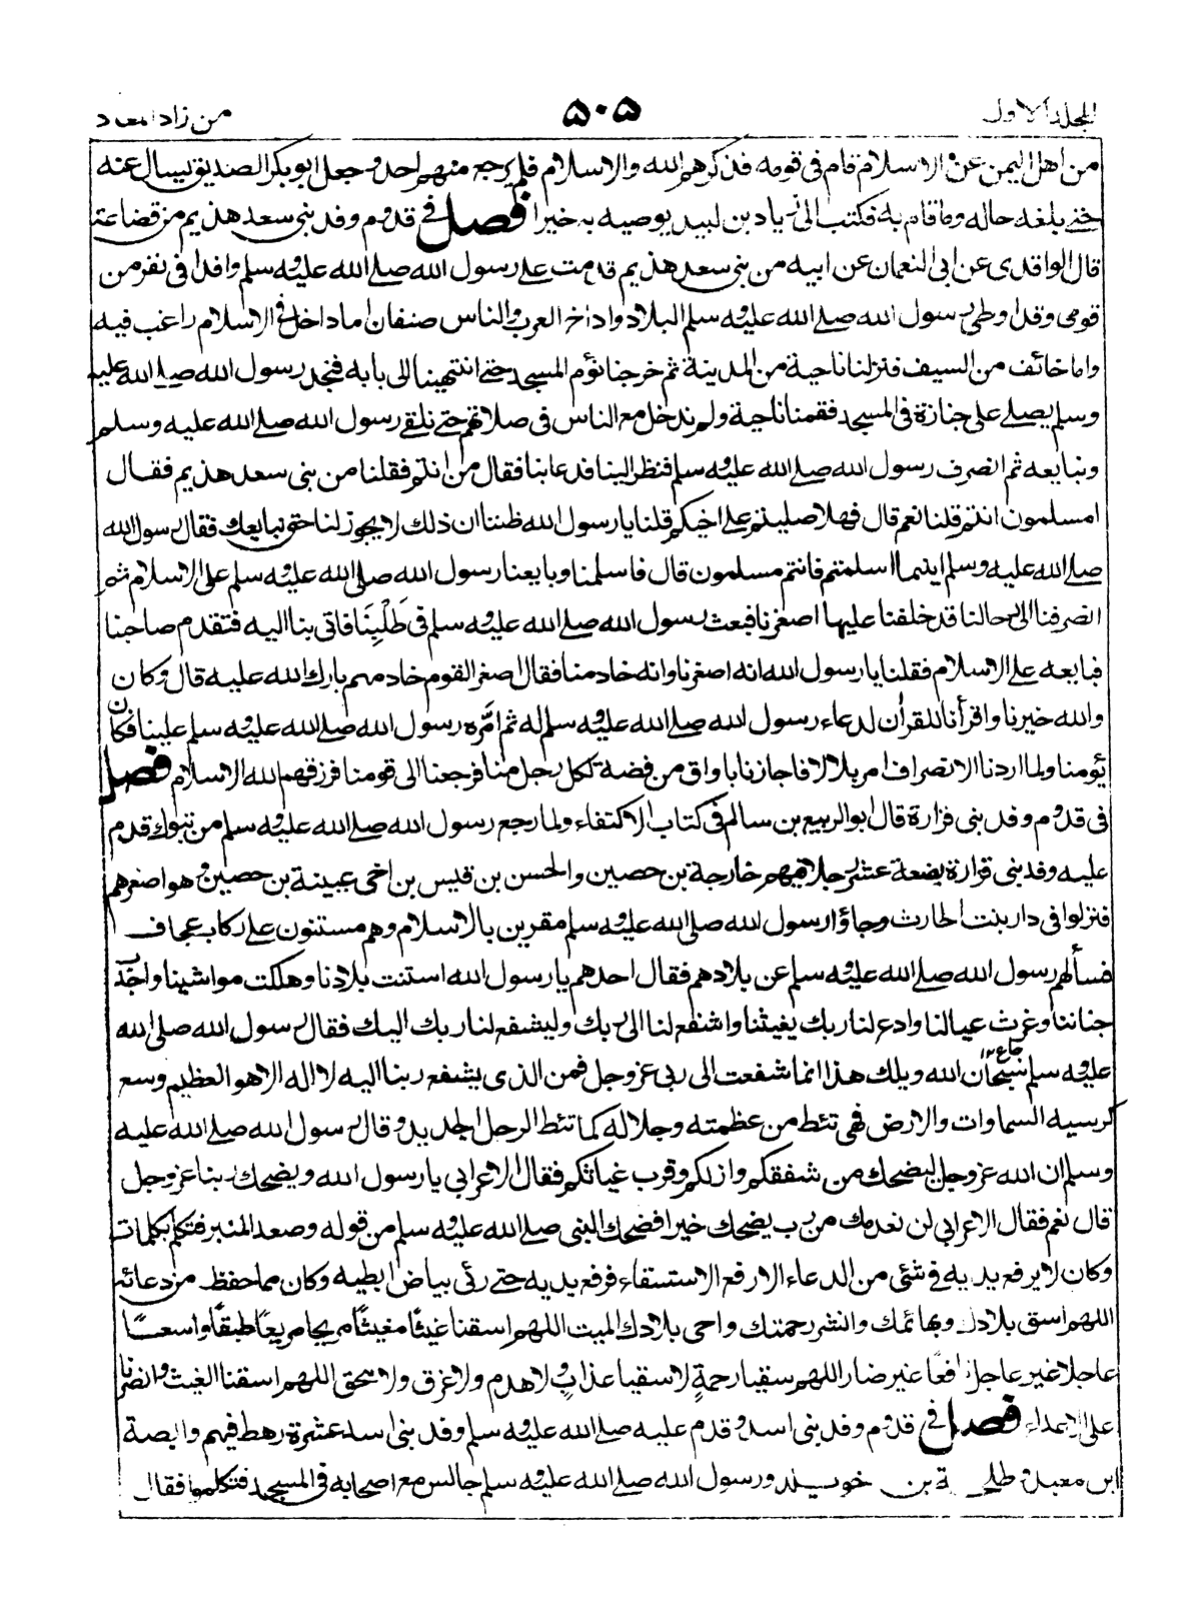 المجلد الاول ۵۰۵ من زاد المعاد
من اهل اليمن عن الاسلام قام فى قومه فذكرهم الله والاسلام فلم يرجع منهم احد وجعل ابو بكر الصديق يسال عنه
حتى بلغه حاله وما قام به فكتب الى زياد بن لبيد يوصيه به خيرا فصل فى قدوم وفد بنى سعد هذيم من قضاعة
قال الواقدى عن ابى النعمان عن ابيه من بنى سعد هذيم قدمت على رسول الله صلى الله عليه وسلم وافدا فى نفر من
قومى وقد اوطى رسول الله صلى الله عليه وسلم البلاد واداخ العرب والناس صنفان اما داخل فى الاسلام راغب فيه
واما خائف من السيف فنزلنا ناحية من المدينة ثم خرجنا نؤم المسجد حتى انتهينا الى بابه فنجد رسول الله صلى الله عليه
وسلم يصلى على جنازة فى المسجد فقمنا ناحية ولم ندخل مع الناس فى صلاتهم حتى نلقى رسول الله صلى الله عليه وسلم
ونبايعه ثم انصرف رسول الله صلى الله عليه وسلم فنظر الينا فدعا بنا فقال من انتم فقلنا من بنى سعد هذيم فقال
امسلمون انتم قلنا نعم قال فهلا صليتم على اخيكم قلنا يا رسول الله ظننا ان ذلك لا يجوز لنا حتى نبايعك فقال رسول الله
صلى الله عليه وسلم اينما اسلمتم فانتم مسلمون قال فاسلمنا وبايعنا رسول الله صلى الله عليه وسلم على الاسلام ثم
انصرفنا الى رحالنا قد خلفنا عليها اصغرنا فبعث رسول الله صلى الله عليه وسلم فى طَلْبِنَا فاتى بنا اليه فتقدم صاحبنا
فبايعه على الاسلام فقلنا يا رسول الله انه اصغرنا وانه خادمنا فقال اصغر القوم خادمهم بارك الله عليه قال وكان
والله خيرنا واقرأنا للقرأن لدعاء رسول الله صلى الله عليه وسلم له ثم امّره رسول الله صلى الله عليه وسلم علينا فكان
يؤمنا ولما اردنا الانصراف امر بلالا فاجازنا باواق من فضة لكل رجل منا فرجعنا الى قومنا فرزقهم الله الاسلام فصل
فى قدوم وفد بنى فزارة قال ابو الربيع بن سالم فى كتاب الاكتفاء ولما رجع رسول الله صلى الله عليه وسلم من تبوك قدم
عليه وفد بنى فزارة بضعة عشر رجلا فيهم خارجة بن حصين والحسن بن قيس بن اخى عيينة بن حصين وهو اصغرهم
فنزلوا فى دار بنت الحارث وجاؤا رسول الله صلى الله عليه وسلم مقرين بالاسلام وهم مسنتون على ركاب عجاف
فسألهم رسول الله صلى الله عليه وسلم عن بلادهم فقال احدهم يا رسول الله استنت بلادنا وهلكت مواشينا واجدب
جناننا وغرث عيالنا وادع لنا ربك يغيثنا واشفع لنا الى ربك وليشفع لنا ربك اليك فقال رسول الله صلى الله
عليه وسلم سبحان الله ويلك هذا انما شفعت الى ربى عز وجل فمن الذى يشفع ربنا اليه لا اله الا هو العظيم وسع
كرسيه السماوات والارض فهى تئط من عظمته وجلاله كما تئط الرحل الجديد وقال رسول الله صلى الله عليه
وسلم ان الله عز وجل ليضحك من شفقكم وازلكم وقرب غياثكم فقال الاعرابى يا رسول الله ويضحك ربنا عز وجل
قال نعم فقال الاعرابى لن نعدمك من رب يضحك خيرا فضحك النبى صلى الله عليه وسلم من قوله وصعد المنبر فتكلم بكلمات
وكان لا يرفع يديه فى شئى من الدعاء الا رفع الاستسقاء فرفع يديه حتى رئى بياض ابطيه وكان مما حفظ من دعائه
اللهم اسق بلادك وبهائمك وانشر رحمتك واحى بلادك الميت اللهم اسقنا غيثًا مغيثًا مريحا مريعًا طبقًا واسعًا
عاجلا غير عاجل نافعًا غير ضار اللهم سقيا رحمةٍ لا سقيا عذابٍ ولا هدم ولا غرق ولا محق اللهم اسقنا الغيث وانصرنا
على الاعداء فصل فى قدوم وفد بنى اسد وقدم عليه صلى الله عليه وسلم وفد بنى اسد عشرة رهط فيهم وابصة
ابن معبد وطلحة بن خويلد ورسول الله صلى الله عليه وسلم جالس مع اصحابه فى المسجد فتكلموا فقال